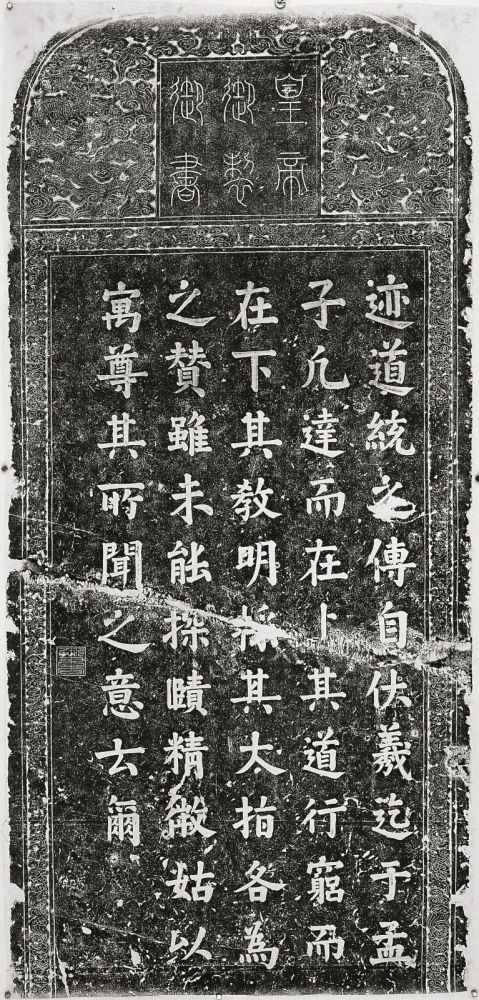 皇帝
御製
御書
迹道統之傳自伏羲迄于孟
子凢達而在上其道行窮而
在下其敎明採其大指各為
之賛雖未能探賾精微姑以
寓尊其所聞之意云爾